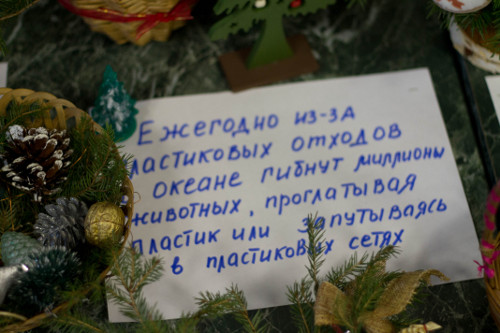 Ежегодно из-за
пластиковых отходов
океане гибнут миллионы
животных, проглатывая
пластик или запутываясь
в пластиковых сетях